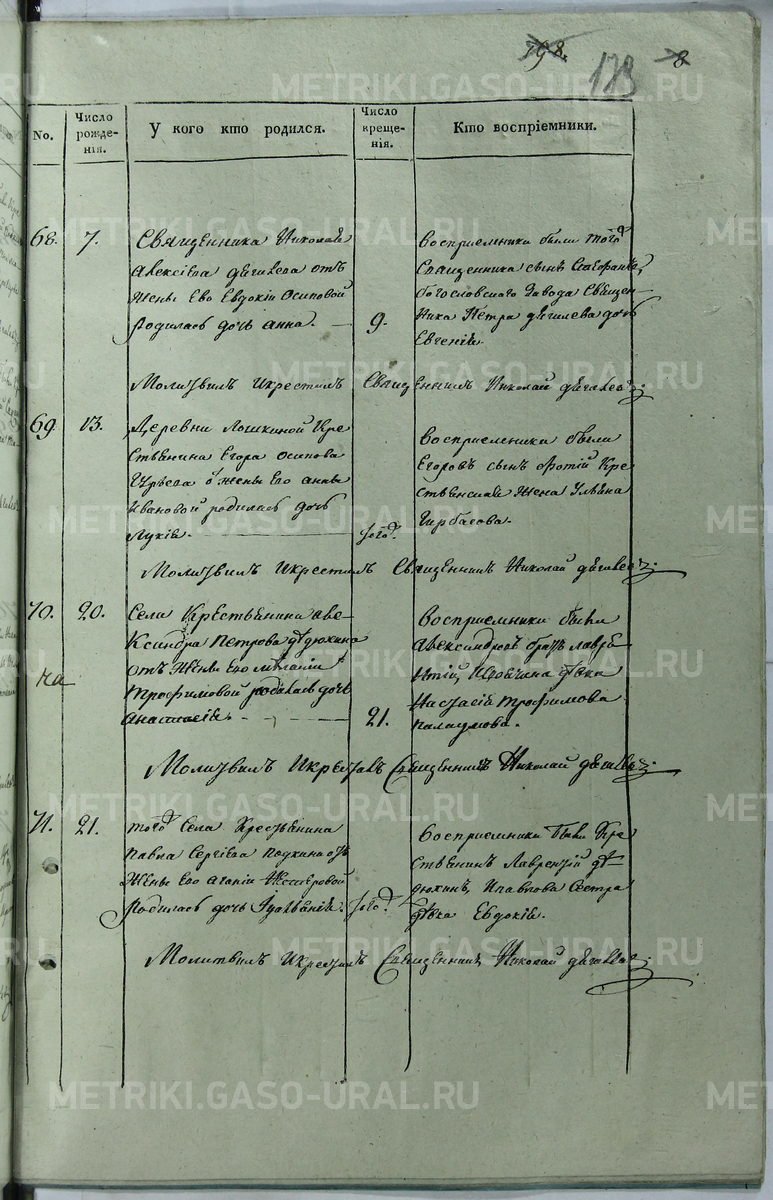 198. 173 8
No.
Число рожденія.
У кого кто родился.
Число крещенія.
Кто воспріемники.
68. 7.
Священника Николая
Алексіева Дягилева отъ
жены Ево Евдокіи Осиповой
родилась дочь Анна. 9.
восприемники были того
Священника сынъ
богословскаго Завода Священ-
ника Петра Дягилева дочь
Евгенія.
Молитвилъ и крестилъ Священникъ Николай Дягилевъ.
69 13.
Деревни Лошкиной кре
стьянина Егора Осипова
жены Его Анны
Ивановой родилась дочь
того
восприемники были
Егоровъ сынъ Фотій кре
стьянская жена Ульяна
Молитвилъ и крестилъ Священникъ Николай Дягилевъ.
70. 20.
Села Крестьянина Але
ксандра Петрова Дѣдюхина
отъ жены Его Меланіи
Трофимовой родилась дочь
Анастасія. 21.
восприемники были
Александровъ братъ Лаврѣ
нтій дѣвка
Настасія Трофимова
Молитвилъ и крестилъ Священникъ Николай Дягилевъ.
71. 21.
того Села Крестьянина
Павла Сергіева отъ
жены Его Агапіи
родилась дочь того
восприемники были Кре
стьянинъ Лаврентій Дѣ
дюхинъ, и Павлова сестра
дѣвка Евдокія.
Молитвилъ и крестилъ Священникъ Николай Дягилевъ.
METRIKI.GASO-URAL.RU